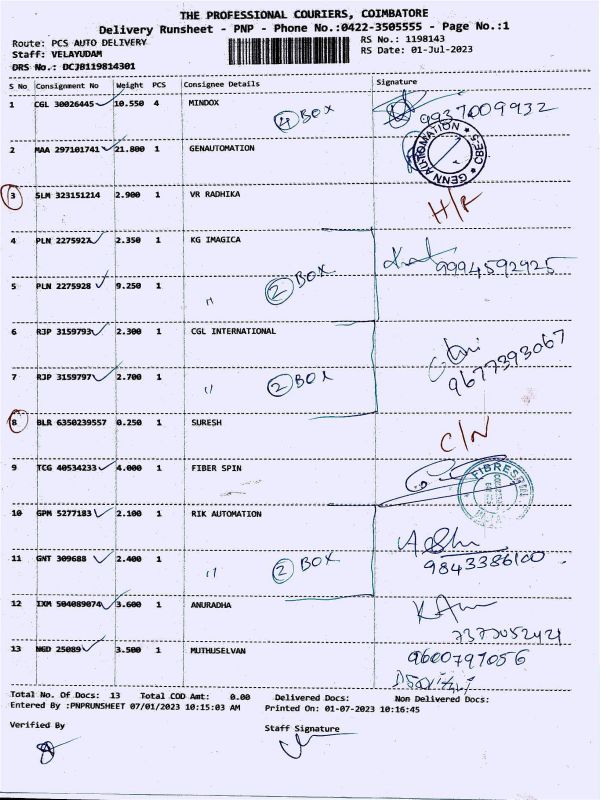 THE PROFESSIONAL COURIERS, COIMBATORE
Delivery Runsheet - PNP - Phone No.:0422-3505555 - Page No.:1
Route: PCS AUTO DELIVERY
RS No.: 1198143
Staff: VELAYUDAM
RS Date: 01-Jul-2023
DRS No.: DCJB119814301
S No Consignment No Weight PCS Consignee Details Signature
1 CGL 30026445 10.550 4 MINDOX
4 BOX
9937009932
2 MAA 297101741 21.800 1 GENAUTOMATION
GENN AUTOMATION * CBE-5 *
3 SLM 323151214 2.900 1 VR RADHIKA
H/R
4 PLN 2275927 2.350 1 KG IMAGICA
9994592925
5 PLN 2275928 9.250 1 〃 2 BOX
6 RJP 3159793 2.300 1 CGL INTERNATIONAL
9677393067
7 RJP 3159797 2.700 1 〃 2 BOX
8 BLR 6350239557 0.250 1 SURESH
C/N
9 TCG 40534233 4.000 1 FIBER SPIN
10 GPM 5277183 2.100 1 RIK AUTOMATION
11 GNT 309688 2.400 1 〃 2 BOX
9843386100
12 IXM 504089074 3.600 1 ANURADHA
7373052421
13 NGD 25089 3.500 1 MUTHUSELVAN
9600797056
Total No. Of Docs: 13 Total COD Amt: 0.00 Delivered Docs: Non Delivered Docs:
Entered By :PNPRUNSHEET 07/01/2023 10:15:03 AM Printed On: 01-07-2023 10:16:45
Verified By
Staff Signature